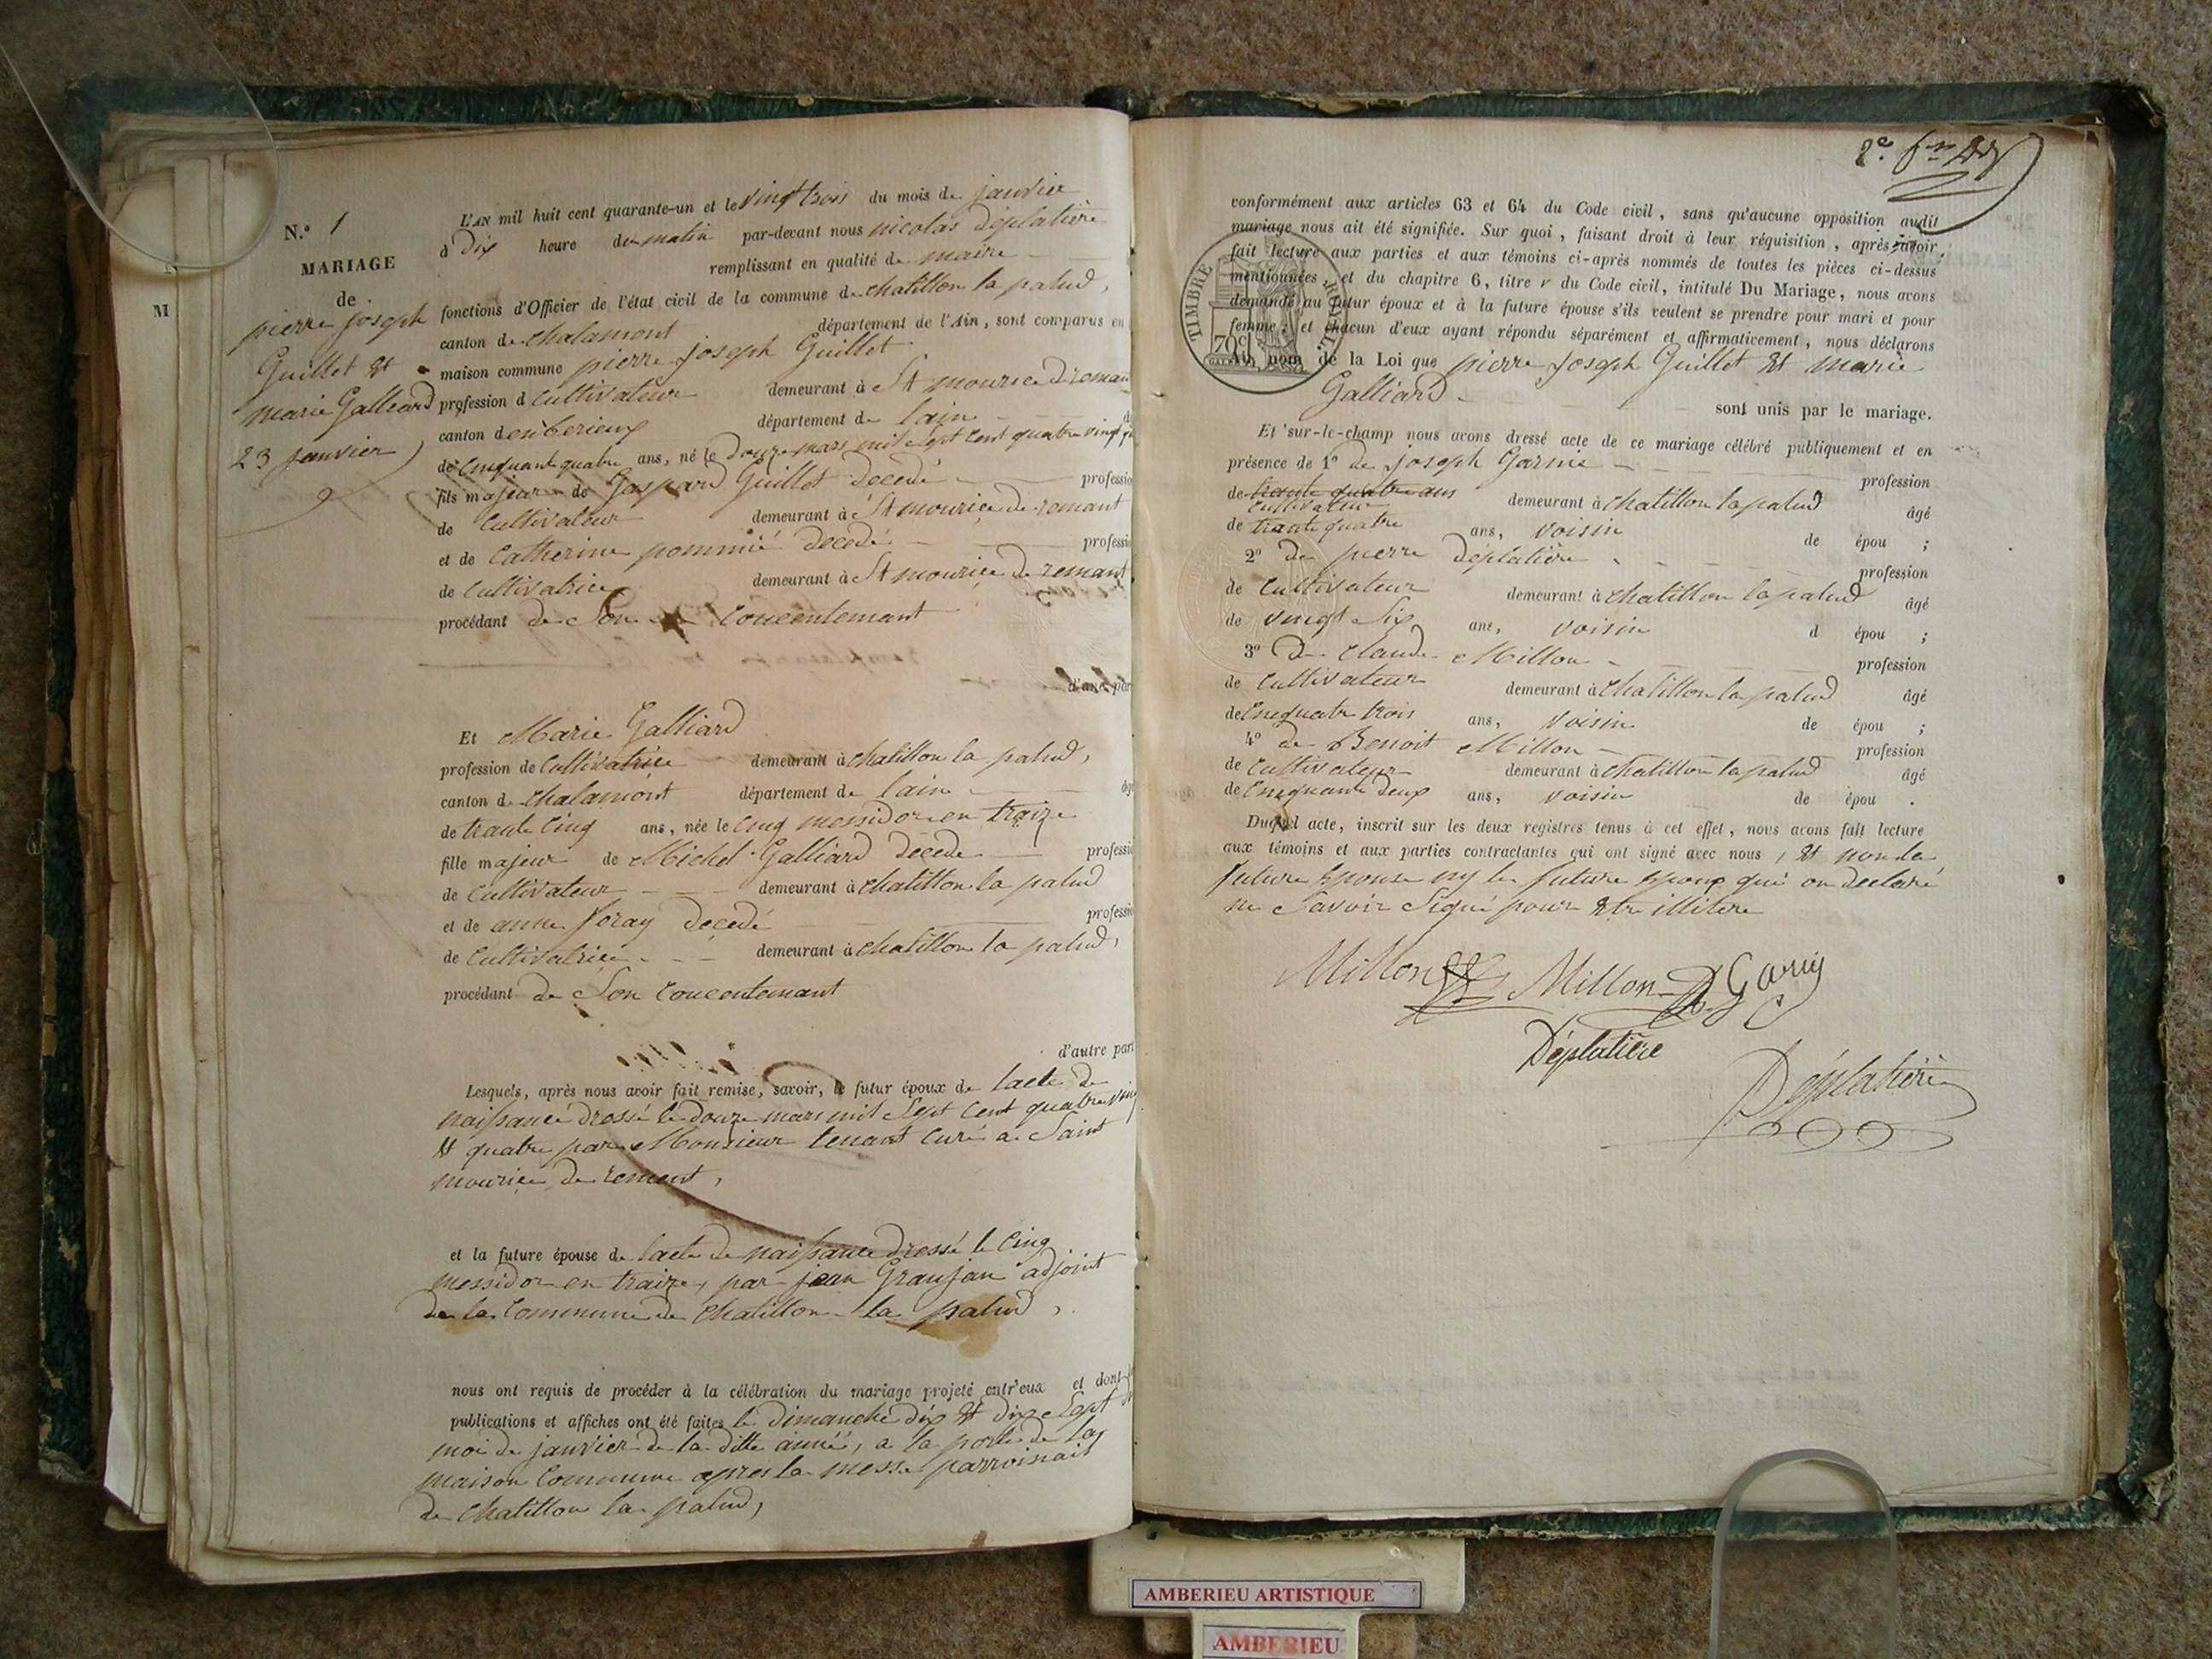 N.º 1
MARIAGE
de
pierre joseph
Guillet et
marie Galleard
23 janvier
M
L'AN mil huit cent quarante-un et le vingt trois du mois de janvier
à Dix heure du matin par-devant nous nicolas Déplatière
remplissant en qualité de maire
fonctions d'Officier de l'état civil de la commune de chatillon la palud,
canton de chalamont département de l'Ain, sont comparus en
maison commune pierre joseph Guillet
profession d cultivateur demeurant à St mourice de reman
canton d enberieux département de lain
de Cinquante quatre ans, né le douze mars mil sept cent quatre vingt
fils majeur de Gaspard Guillet decedé professio
de cultivateur demeurant à St mourice de remant
et de Catherine pommié decedé professio
de cultivatrice demeurant à St mourice de remant
procédant de Son concentemant
d'une par
Et Marie Galliard
profession de cultivatrice demeurant à chatillon la palud,
canton de chalamont département de lain âgé
de trante cinq ans, née le cinq messidor en traize
fille majeur de Michel Galliard decede professio
de cultivateur demeurant à chatillon la palud
et de anne foray decedé professio
de cultivatrice demeurant à chatillon la palud,
procédant de Son concentemant
d'autre part
Lesquels, après nous avoir fait remise, savoir, le futur époux de lacte de
naissance drossé le douze mars mil sept cent quatre ving
et quatre par Monsieur tenant curé a Saint
mourice de rement,
et la future épouse de lacte de naissance drossé le cinq
messidor en traize, par jean Granjan adjoint
de la commune de chatillon la palud,
nous ont requis de procéder à la célébration du mariage projeté entr'eux et dont
publications et affiches ont été faites le dimanche dix et dix sept
moi de janvier de la ditte année, a la porte de la
maison commune apres la messe parroisiais
de chatillon la palud,
2e
conformément aux articles 63 et 64 du Code civil, sans qu'aucune opposition audit
mariage nous ait été signifiée. Sur quoi, faisant droit à leur réquisition, après avoir
fait lecture aux parties et aux témoins ci-après nommés de toutes les pièces ci-dessus
mentionnées, et du chapitre 6, titre v du Code civil, intitulé Du Mariage, nous avons
demandé au futur époux et à la future épouse s'ils veulent se prendre pour mari et pour
femme; et chacun d'eux ayant répondu séparément et affirmativement, nous déclarons
Au nom de la Loi que pierre joseph Guillet et marie
Galliard sont unis par le mariage.
TIMBRE ROYAL
70c
Et sur-le-champ nous avons dressé acte de ce mariage célébré publiquement et en
présence de 1º de joseph Garnie profession
de trante quatre ans demeurant à chatillon la palud âgé
cultivateur
de trante quatre ans, voisin de épou ;
2º de pierre déplatière profession
de cultivateur demeurant à chatillon la palud âgé
de vingt six ans, voisin d épou ;
3º de claude Millon profession
de cultivateur demeurant à chatillon la palud âgé
de Cinquate trois ans, voisin de épou ;
4º de Benoit Millon profession
de cultivateur demeurant à chatillon la palud âgé
de Cinquante deux ans, voisin de épou .
Duquel acte, inscrit sur les deux registres tenus à cet effet, nous avons fait lecture
aux témoins et aux parties contractantes qui ont signé avec nous, et non la
future Epouse ny le future Epoux qui on declaré
ne Savoir Signé pour etre illitere
Millon Millon Garny
Déplatière
Déplatière
AMBERIEU ARTISTIQUE
AMBERIEU